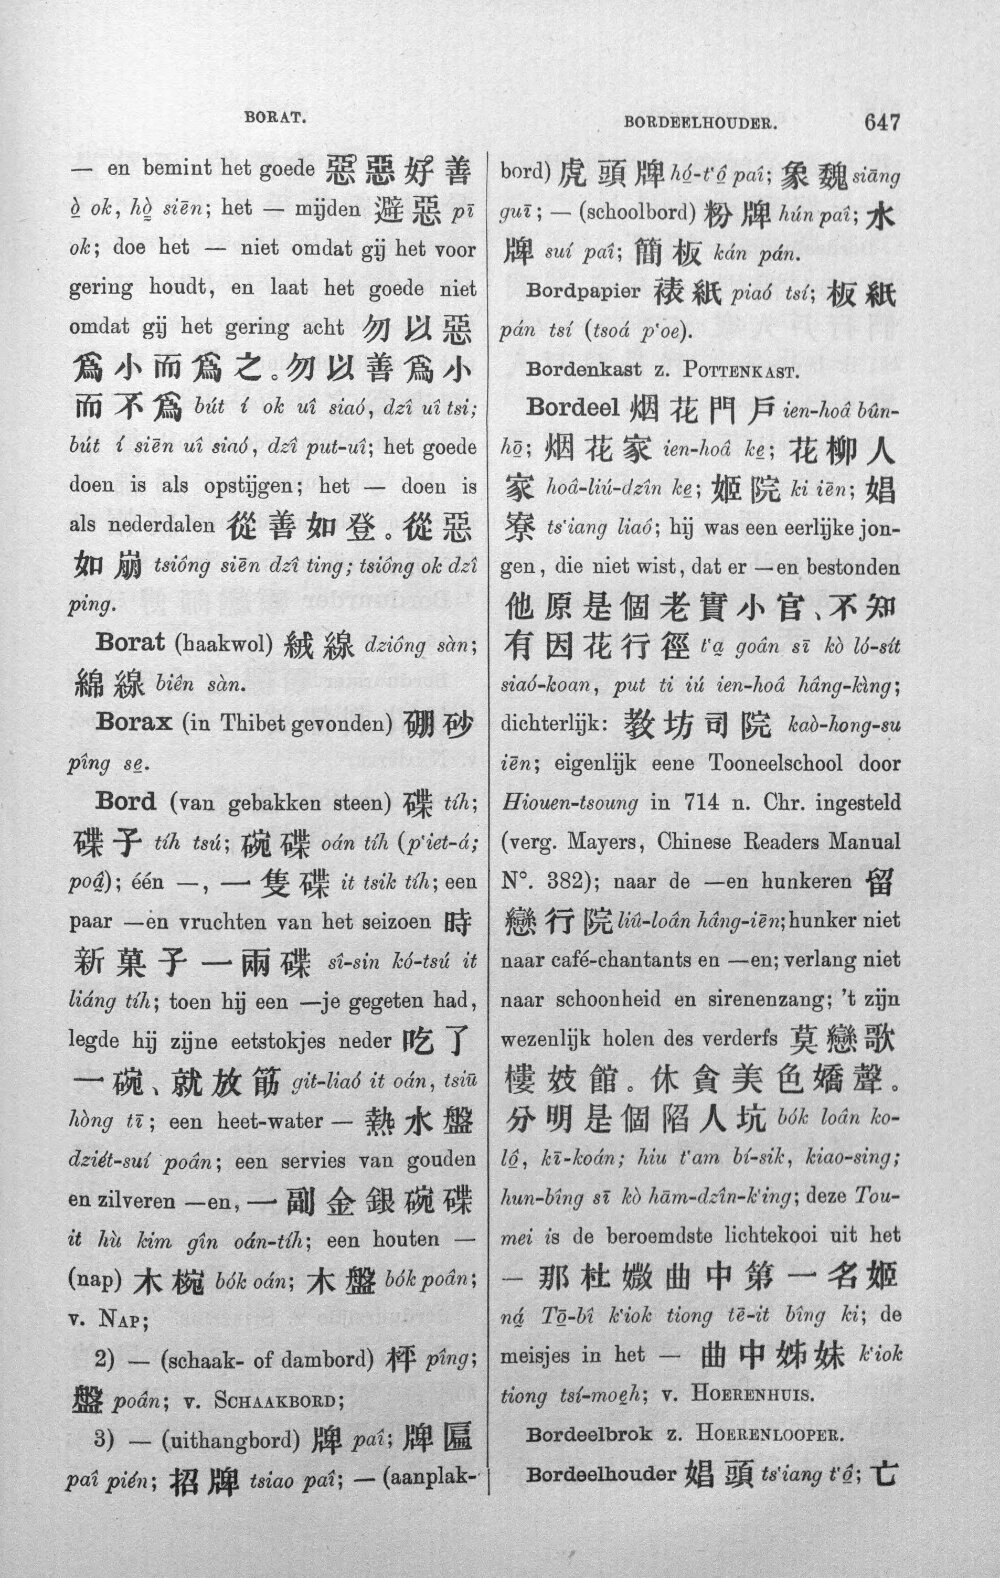 BORAT.
— en bemint het goede 惡惡好善
ò̱ ok, hò̱ siēn; het — mijden 避惡 pī
ok; doe het — niet omdat gij het voor
gering houdt, en laat het goede niet
omdat gij het gering acht 勿以惡
爲小而爲之。勿以善爲小
而不爲 bút í ok uî siaó, dzî uî tsi;
bút í siēn uî siaó, dzî put-uî; het goede
doen is als opstijgen; het — doen is
als nederdalen 從善如登。從惡
如崩 tsiông siēn dzî ting; tsiông ok dzî
ping.
Borat (haakwol) 絨線 dziông sàn;
綿線 biên sàn.
Borax (in Thibet gevonden) 硼砂
pîng se̱.
Bord (van gebakken steen) 碟 tíh;
碟子 tíh tsú; 碗碟 oán tíh (p‘iet-á;
poâ̱); één —, 一隻碟 it tsik tíh; een
paar —en vruchten van het seizoen 時
新菓子一兩碟 sî-sin kó-tsú it
liáng tíh; toen hij een —je gegeten had,
legde hij zijne eetstokjes neder 吃了
一碗、就放筯 git-liaó it oán, tsiū
hòng tī; een heet-water — 熱水盤
dziét-suí poân; een servies van gouden
en zilveren —en, 一副金銀碗碟
it hù kim gîn oán-tíh; een houten —
(nap) 木椀 bók oán; 木盤 bók poân;
v. NAP;
2) — (schaak- of dambord) 枰 pîng;
盤 poân; v. SCHAAKBORD;
3) — (uithangbord) 牌 paî; 牌匾
paî pién; 招牌 tsiao paî; — (aanplak-
BORDEELHOUDER. 647
bord) 虎頭牌 hó̱-t‘ô̱ paî; 象魏 siāng
guī; — (schoolbord) 粉牌 hún paî; 水
牌 suí paî; 簡板 kán pán.
Bordpapier 裱紙 piaó tsí; 板紙
pán tsí (tsoá p‘oe).
Bordenkast z. POTTENKAST.
Bordeel 烟花門戶 ien-hoâ bûn-
hō̱; 烟花家 ien-hoâ ke̱; 花柳人
家 hoâ-liú-dzîn ke̱; 姬院 ki iēn; 娼
寮 ts‘iang liaó; hij was een eerlijke jon-
gen, die niet wist, dat er —en bestonden
他原是個老實小官、不知
有因花行徑 t‘a̱ goân sī kò ló-sít
siaó-koan, put ti iú ien-hoâ hâng-kìng;
dichterlijk: 教坊司院 kaò-hong-su
iēn; eigenlijk eene Tooneelschool door
Hiouen-tsoung in 714 n. Chr. ingesteld
(verg. Mayers, Chinese Readers Manual
N°. 382); naar de —en hunkeren 留
戀行院 liû-loân hâng-iēn; hunker niet
naar café-chantants en —en; verlang niet
naar schoonheid en sirenenzang; ’t zijn
wezenlijk holen des verderfs 莫戀歌
樓妓館。休貪美色嬌聲。
分明是個陷人坑 bók loân ko-
lô̱, kī-koán; hiu t‘am bí-sik, kiao-sing;
hun-bîng sī kò hām-dzîn-k‘ing; deze Tou-
mei is de beroemdste lichtekooi uit het
— 那杜媺曲中第一名姬
ná̱ Tō̱-bî k‘iok tiong tē-it bîng ki; de
meisjes in het — 曲中姊妹 k‘iok
tiong tsí-moe̱h; v. HOERENHUIS.
Bordeelbrok z. HOERENLOOPER.
Bordeelhouder 娼頭 ts‘iang t‘ô̱; 亡